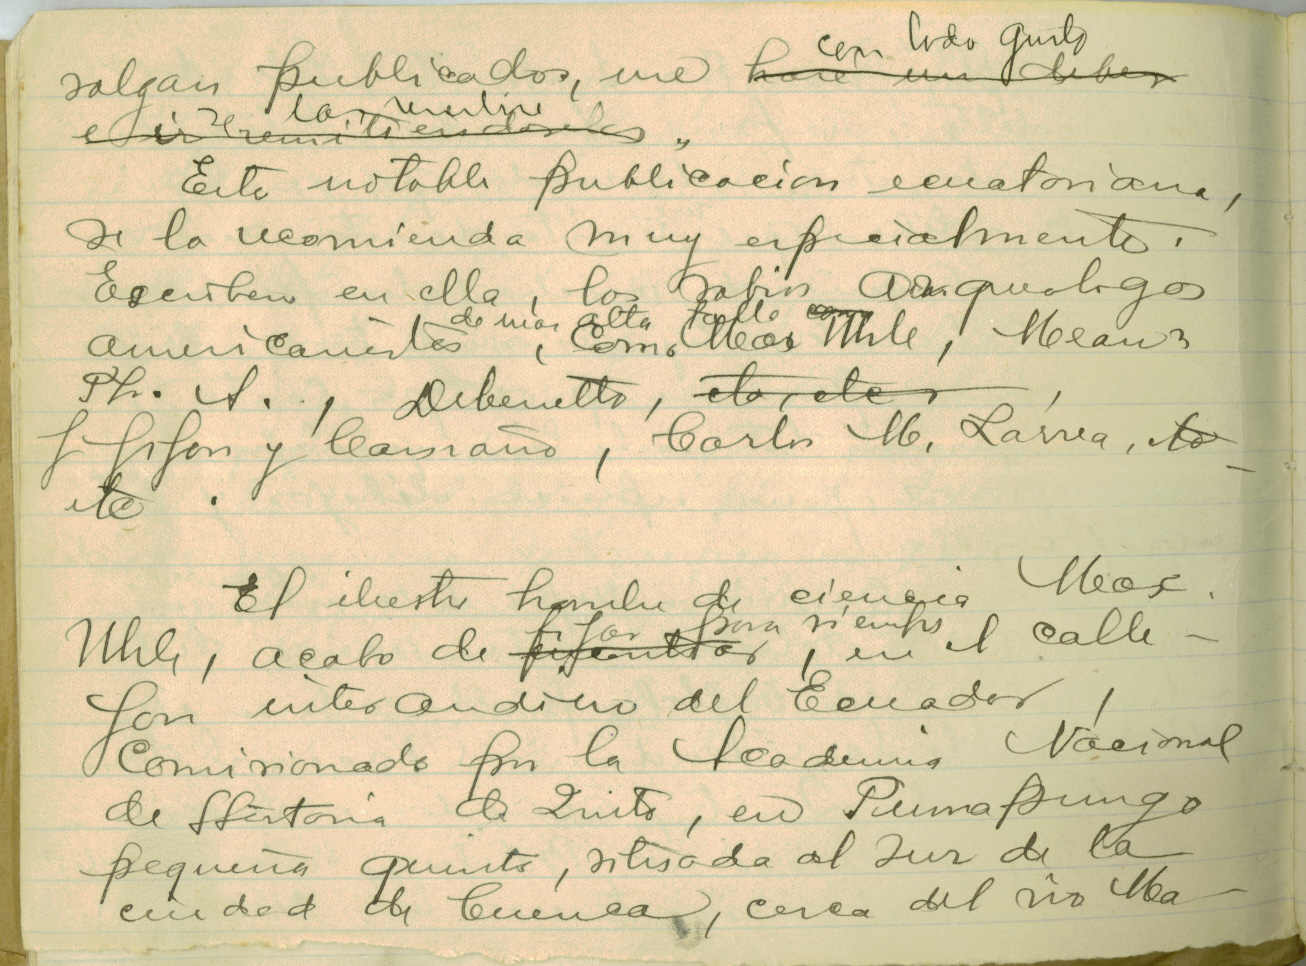 con todo gusto
salgan publicados, me hace un deber
se las remitire
e ir remitiendoselas "
Esta notable publicacion ecuatoriana,
se la recomienda muy especialmente.
Escriben en ella, los sabios arqueologos
de mas alta talla como
americanistas, Como Max Uhle, Means
Ph. A., Debenetto, etc, etc,
J Jijon y Caamaño, Carlos M. Larrea, etc
etc.
El ilustre hombre de ciencia Max.
fijar para siempre
Uhle, acaba de , en el calle-
jon interandino del Ecuador,
Comisionado por la Academia Nacional
de Historia de Quito, en Pumapungo
pequeña quinta, situada al sur de la
ciudad de Cuenca, cerca del rio Ma-